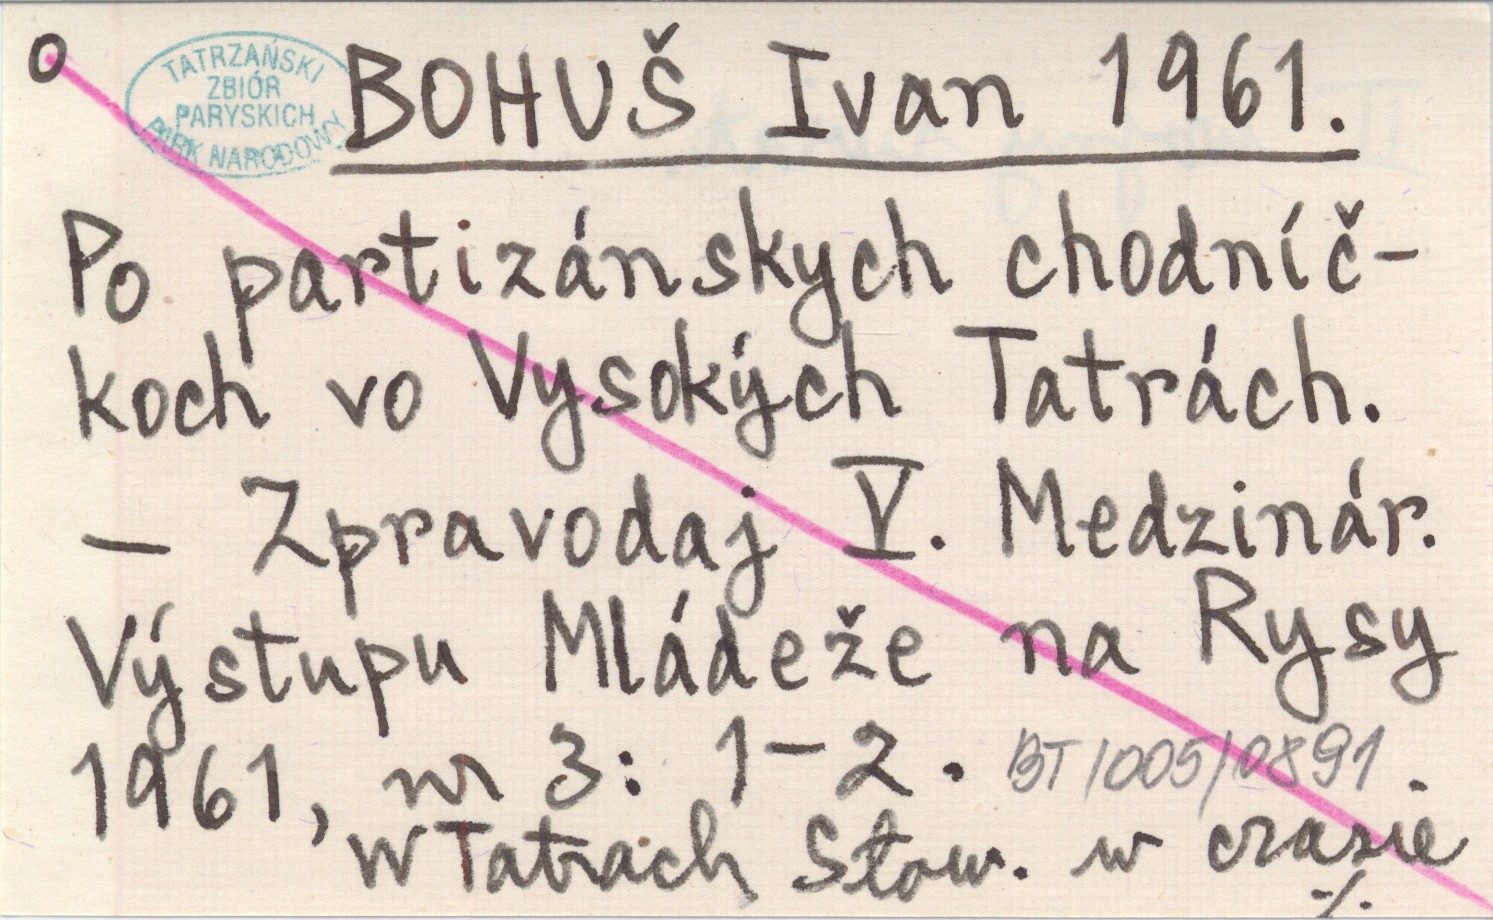 O
TATRZAŃSKI
ZBIÓR
PARYSKICH
PARK NARODOWY
BOHUŠ Ivan 1961.
Po partizánskych chodníč-
koch vo Vysokých Tatrách.
— Zpravodaj V. Medzinár.
Výstupu Mládeže na Rysy
1961, nr 3: 1-2. BT/005/0891.
W Tatrach Słow. w czasie
./.